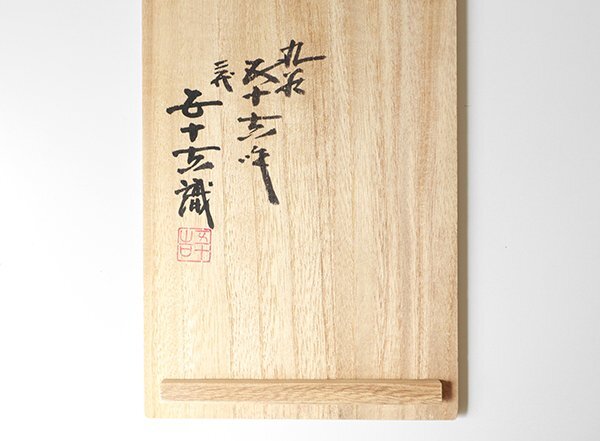 九谷
五十吉作
三代
五十吉識
五十吉